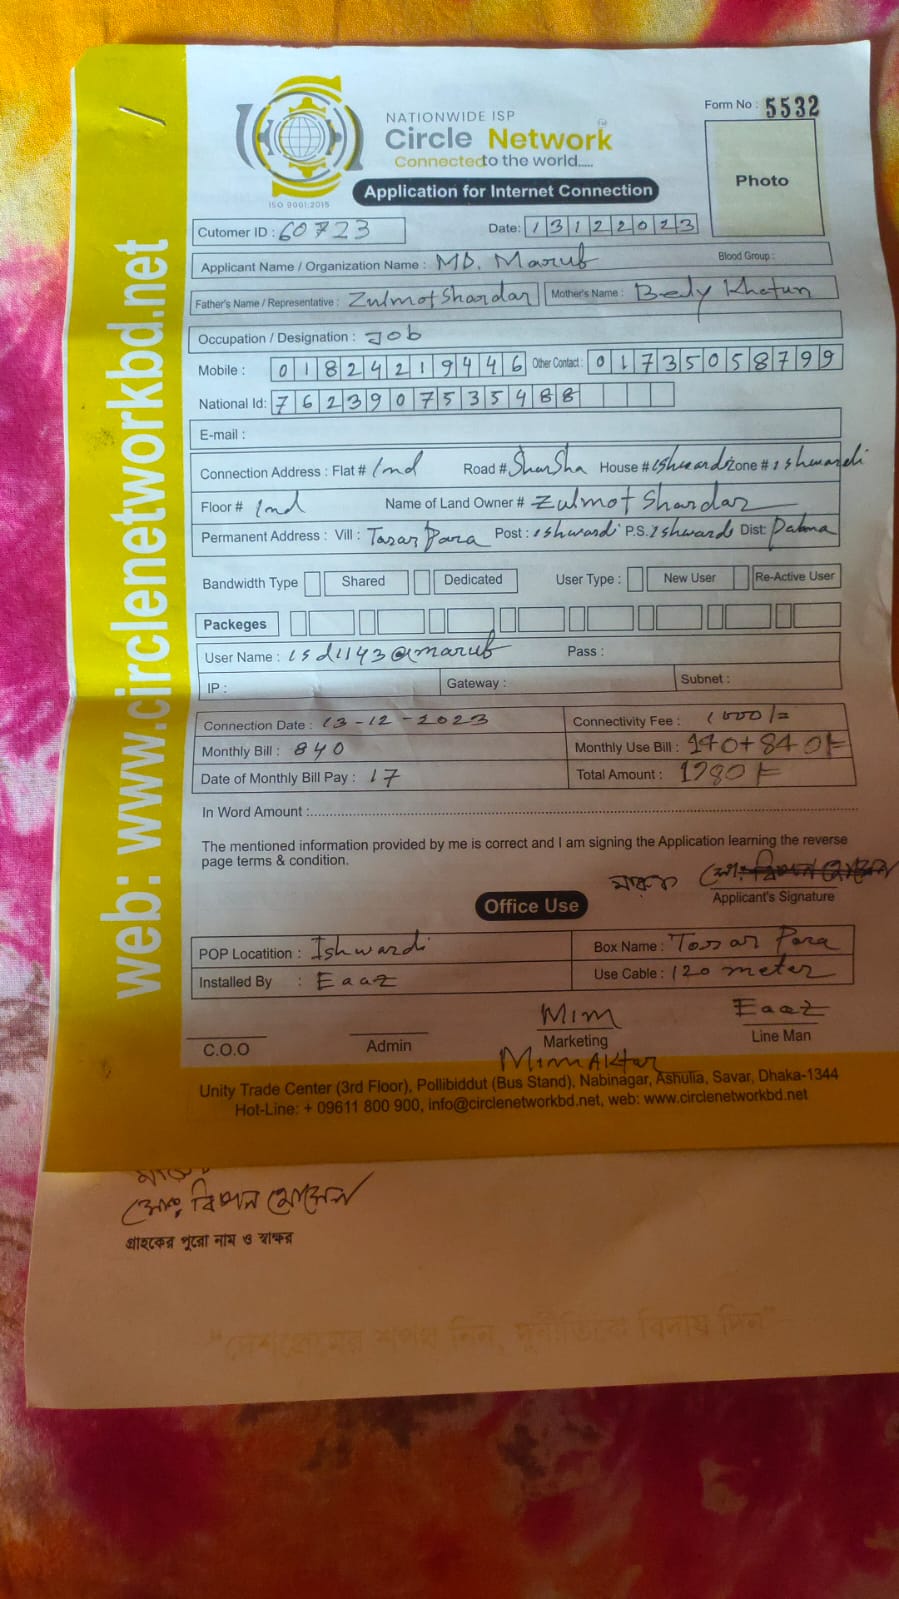 NATIONWIDE ISP
Circle Network
Connected to the world.....
ISO 9001:2015
Form No : 5532
Photo
Application for Internet Connection
Cutomer ID : 60723 Date: 13122023
Applicant Name / Organization Name : MD. Maruf Blood Group :
Father's Name / Representative : Zulmot Shardar Mother's Name : Bedy Khatun
Occupation / Designation : Job
Mobile : 01824219446 Other Contact : 01735058799
National Id: 76239075354 88
E-mail :
Connection Address : Flat # 1nd Road # ShanSha House # ishwardi Zone # ishwardi
Floor # 1nd Name of Land Owner # Zulmot Shardar
Permanent Address : Vill : Tasar Para Post : ishwardi P.S. Ishwardi Dist: Pabna
Bandwidth Type Shared Dedicated User Type : New User Re-Active User
Packeges
User Name : isd1143@maruf Pass :
IP : Gateway : Subnet :
Connection Date : 13-12-2023 Connectivity Fee : 1000/=
Monthly Bill : 840 Monthly Use Bill : 140+840/=
Date of Monthly Bill Pay : 17 Total Amount : 1980/=
In Word Amount :
The mentioned information provided by me is correct and I am signing the Application learning the reverse
page terms & condition.
মারুফ
Applicant's Signature
Office Use
POP Locatition : Ishwardi Box Name : Tossar Para
Installed By : Eaaz Use Cable : 120 meter
C.O.O Admin Mim Marketing Eaaz Line Man
Mim Aktar
Unity Trade Center (3rd Floor), Pollibiddut (Bus Stand), Nabinagar, Ashulia, Savar, Dhaka-1344
Hot-Line: + 09611 800 900, info@circlenetworkbd.net, web: www.circlenetworkbd.net
web: www.circlenetworkbd.net
গ্রাহকের পুরো নাম ও স্বাক্ষর
"দেশপ্রেমের শপথ নিন, দুর্নীতিকে বিদায় দিন"